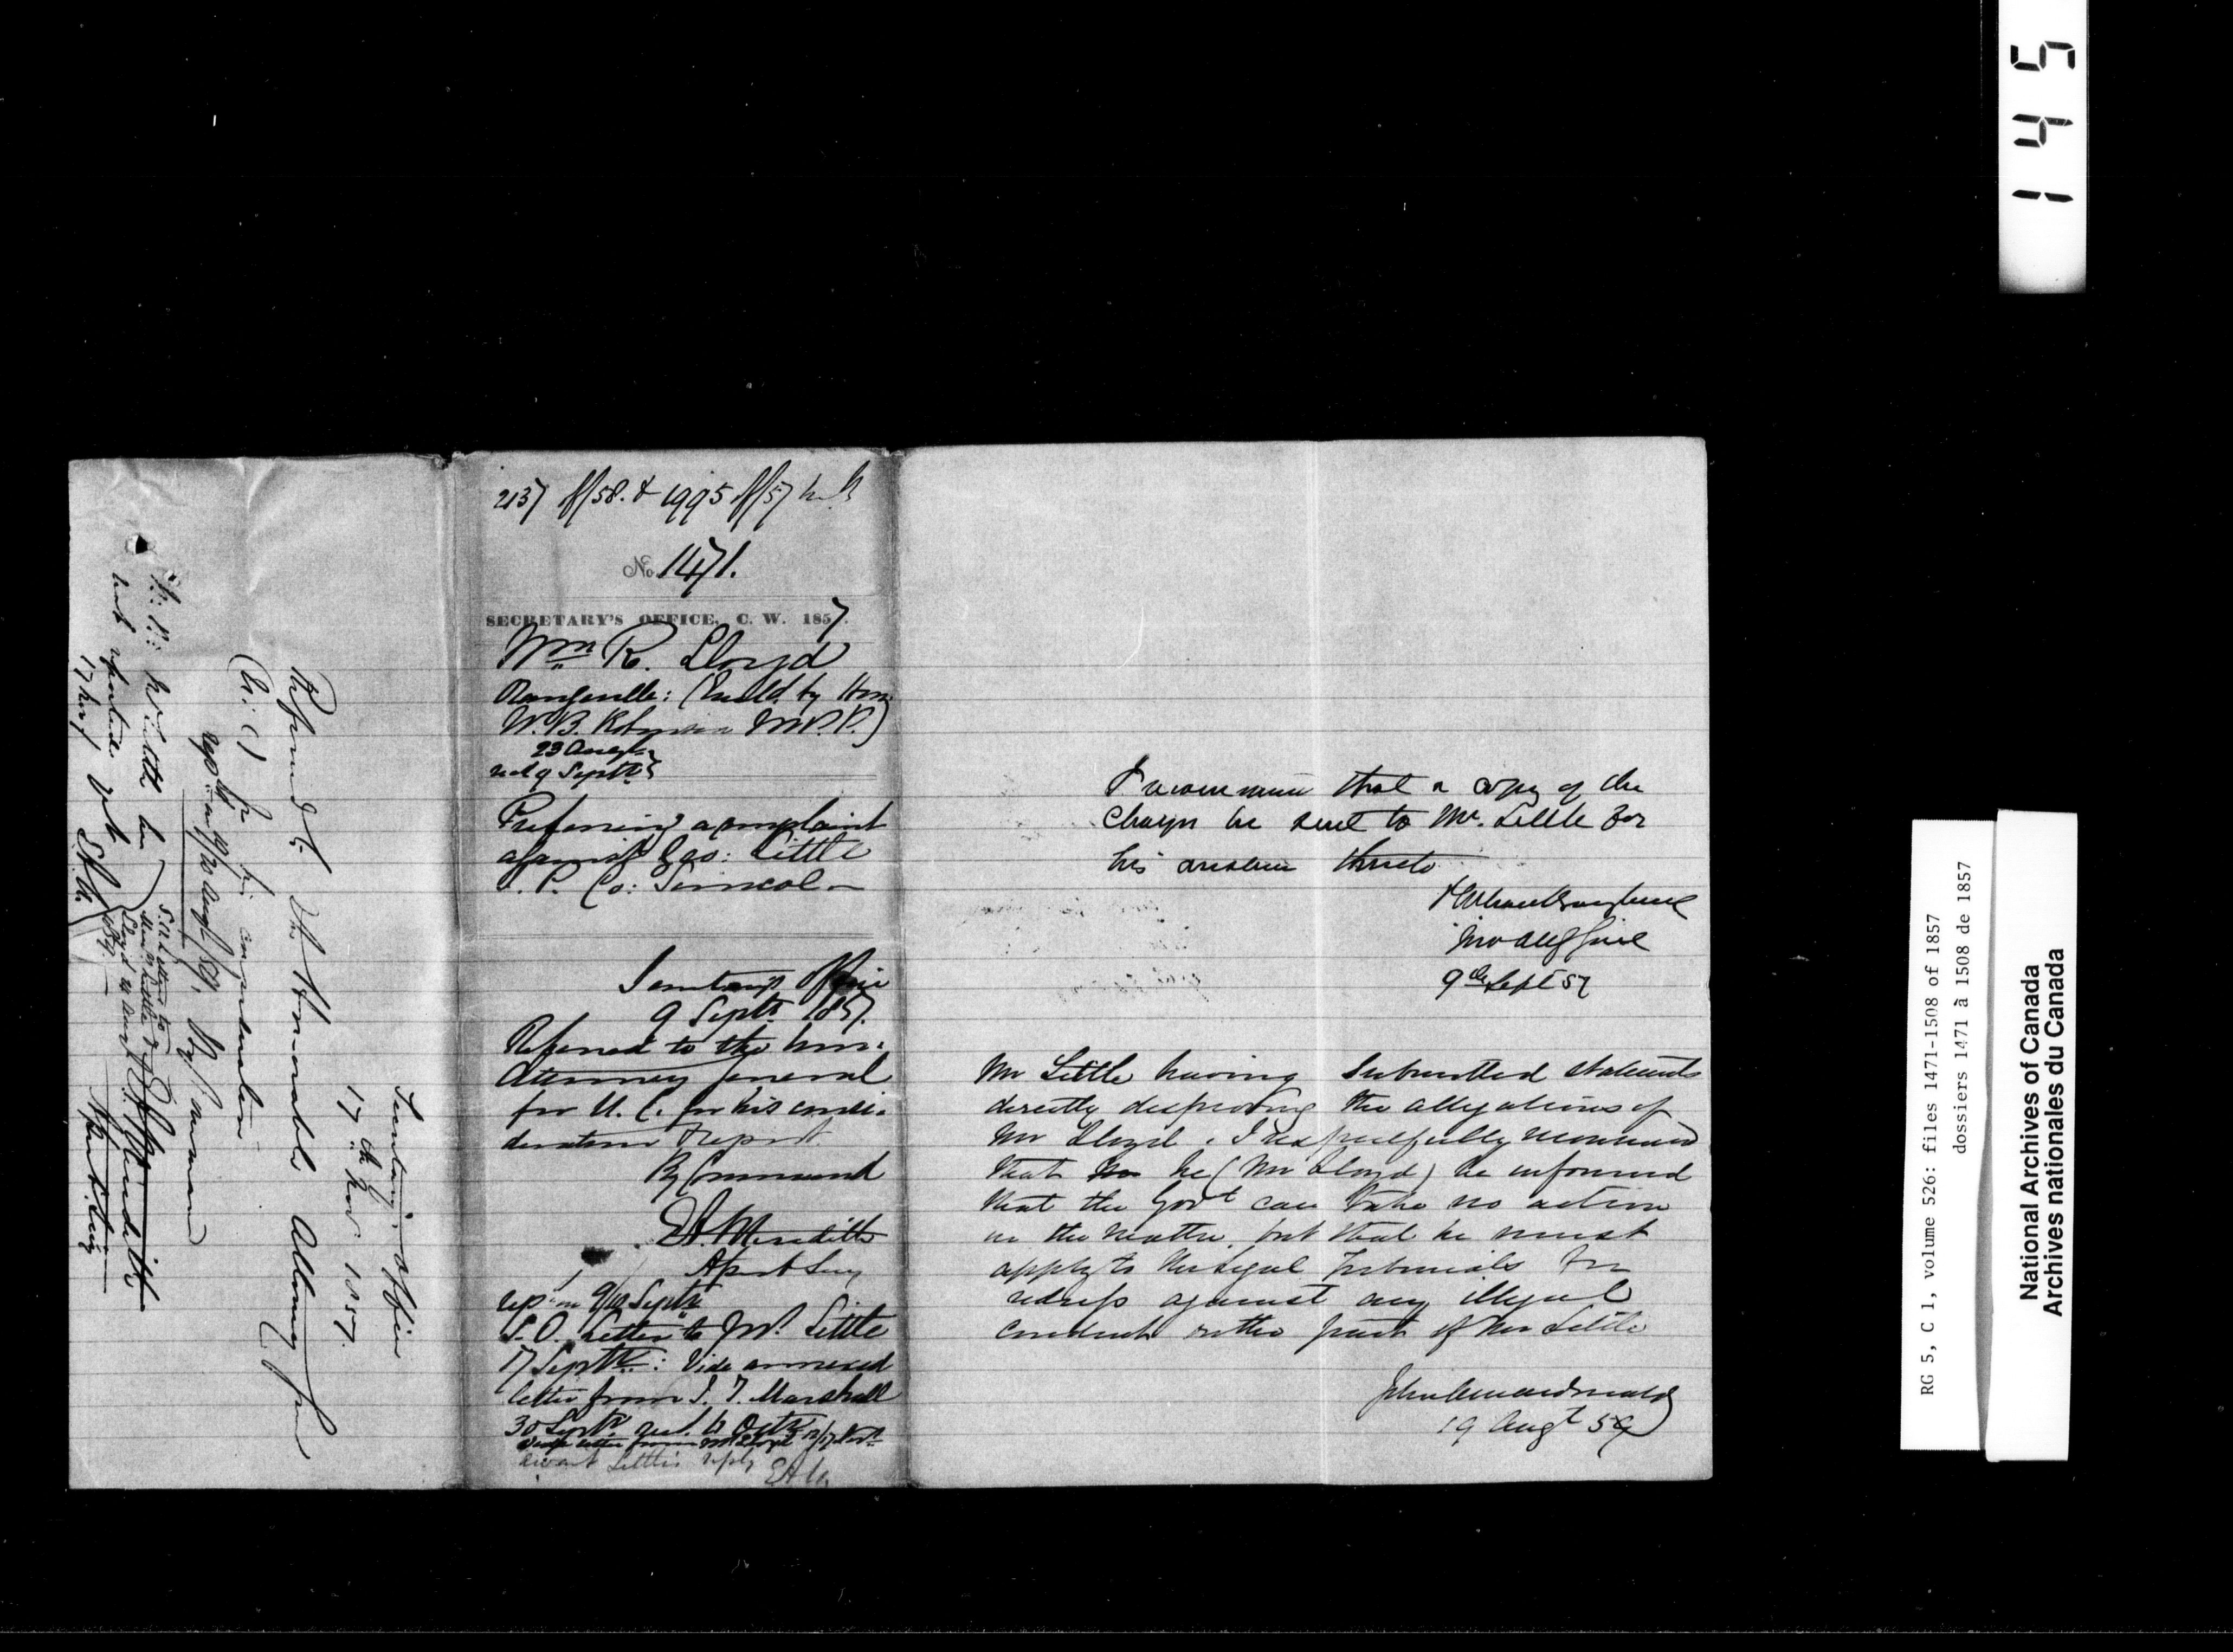 145
RG 5, C 1, volume 526: files 1471-1508 of 1857
dossiers 1471 à 1508 de 1857
National Archives of Canada
Archives nationales du Canada
2137 of/58. & 1995 of/57
No. 1471.
SECRETARY'S OFFICE, C. W. 1857.
Wm R. Lloyd
Orangeville: by Hon
W. B. Robinson M.P.P.)
23 Augt
recd 9 Septr
Preferring a complaint
against Geo: Little
J. P. Co: Simcoe
Secretary's Office
9 Septr 1857.
Referred to the hon:
Attorney General
for U. C. for his consi-
deration & report
By Command
E. A. Meredith
Asst Secy
Septr
S. O. Letter to Mr Little
17 Septr: Vide annexed
letter from J. T. Marshall
30 Septr recd Octr
letter from Mr Lloyd
await Little's reply
E.A.M.
Secretary's Office
17th 1857.
Referred to the Honorable Attorney Genl
for his consideration
By Command
E. A. Meredith
Asst Secy
Mr Little has
not reported
S.O. Letters to
Mr Little &
Lloyd
I recommend that a copy of the
charges be sent to Mr. Little for
his answer thereto
9th Sept 57
Mr Little having submitted statements
directly disproving the allegations of
Mr Lloyd, I respectfully recommend
that he (Mr Lloyd) be informed
that the Govt can take no action
in the matter, but that he must
apply to the legal Tribunals for
redress against any illegal
conduct on the part of Mr Little
John A Macdonald
19 Augt 59